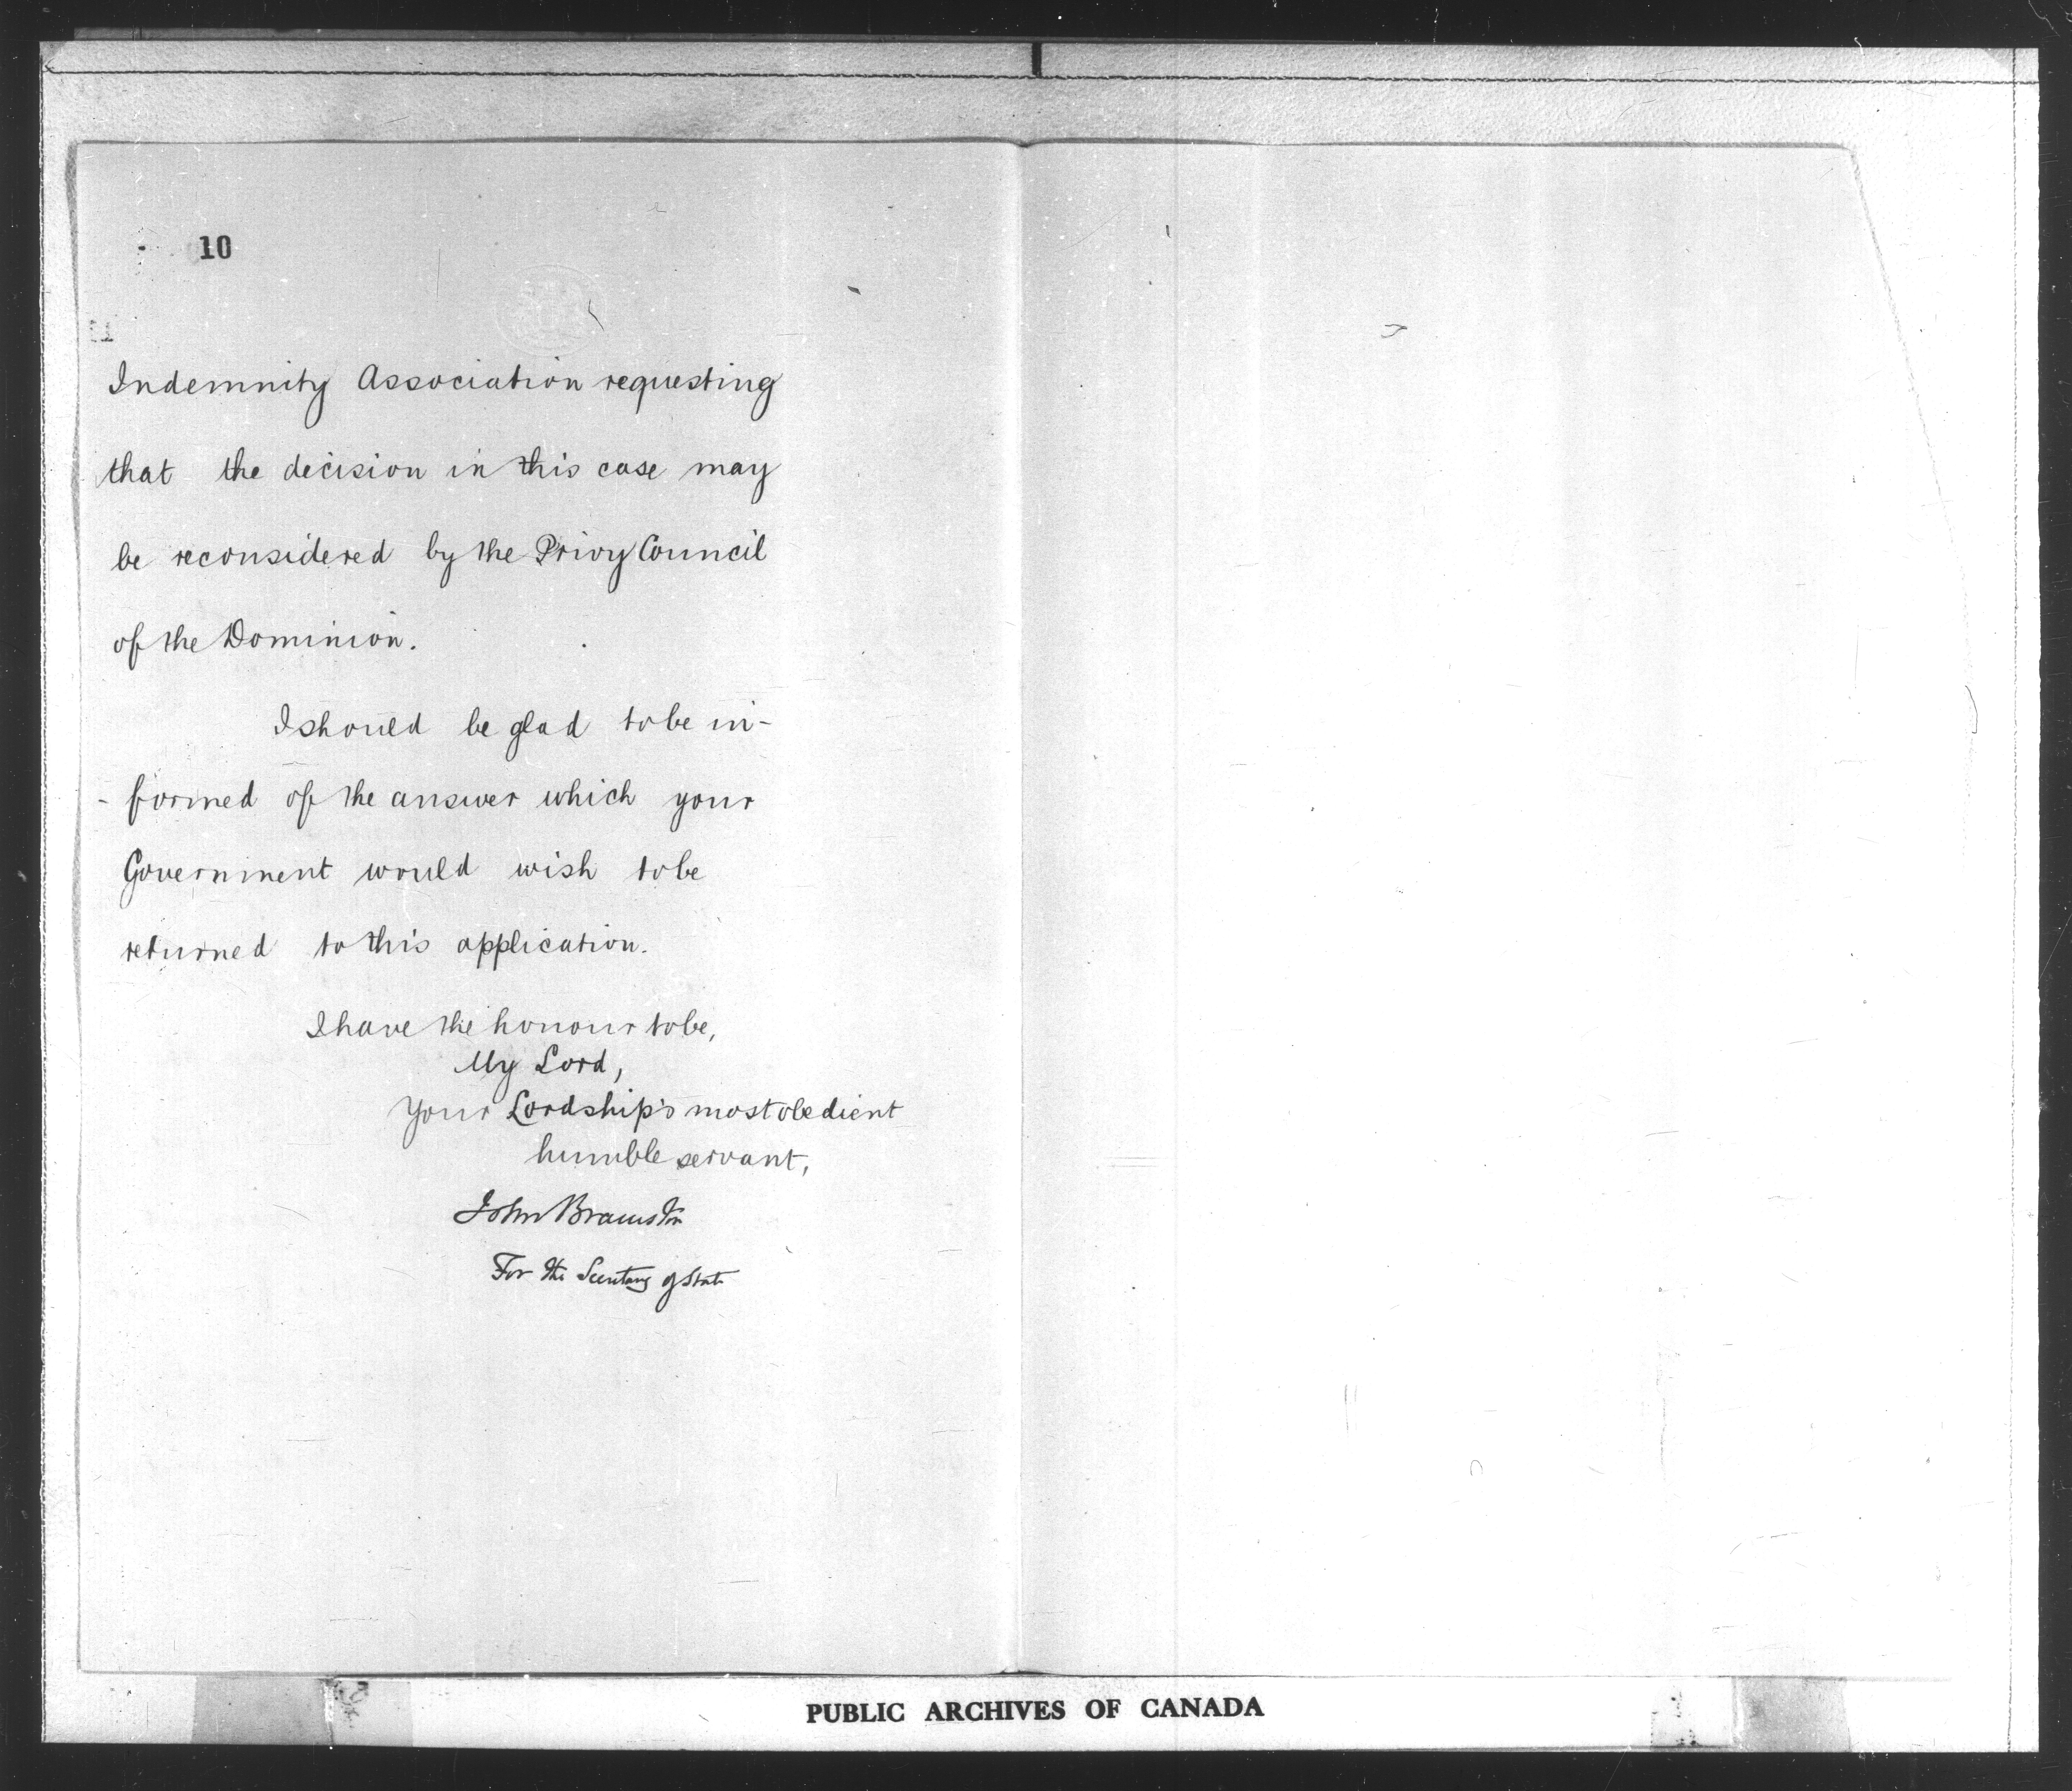 10
Indemnity Association requesting
that the decision in this case may
be reconsidered by the Privy Council
of the Dominion.
I should be glad to be in-
- formed of the answer which your
Government would wish to be
returned to this application.
I have the honour to be,
My Lord,
Your Lordship's most obedient
humble servant,
John Bramston
For the Secretary of State
PUBLIC ARCHIVES OF CANADA